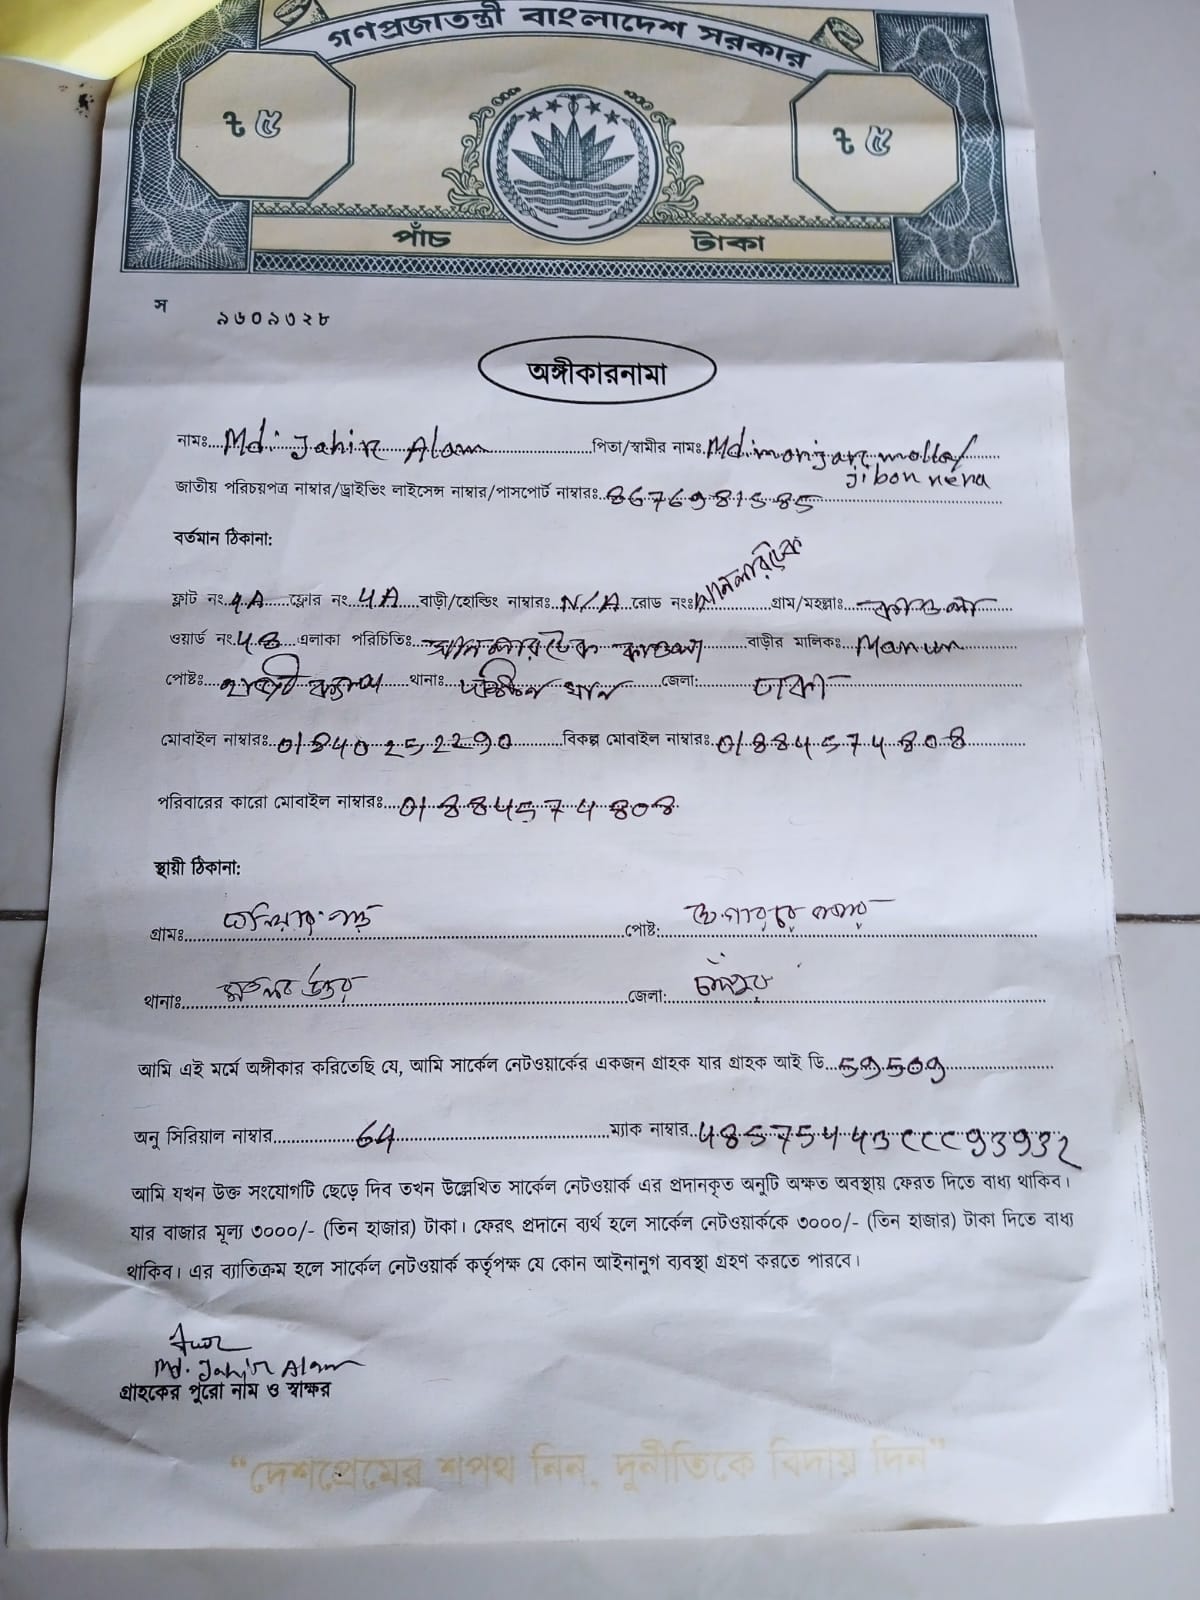 গণপ্রজাতন্ত্রী বাংলাদেশ সরকার
৳ ৫ ৳ ৫
পাঁচ টাকা
স ৯৬০৯৩২৮
অঙ্গীকারনামা
নামঃ Md. Jahir Alam পিতা/স্বামীর নামঃ Md. monjare molla/
jibon nena
জাতীয় পরিচয়পত্র নাম্বার/ড্রাইভিং লাইসেন্স নাম্বার/পাসপোর্ট নাম্বারঃ 8676981585
বর্তমান ঠিকানা:
ফ্লাট নং 4A ফ্লোর নং 4A বাড়ী/হোল্ডিং নাম্বারঃ N/A রোড নংঃ গ্রাম/মহল্লাঃ কাওলা
ওয়ার্ড নং 48 এলাকা পরিচিতিঃ কাওলা বাড়ীর মালিকঃ Manun
পোষ্টঃ থানাঃ দক্ষিন খান জেলা: ঢাকা
মোবাইল নাম্বারঃ 01840252290 বিকল্প মোবাইল নাম্বারঃ 01884574808
পরিবারের কারো মোবাইল নাম্বারঃ 01884574808
স্থায়ী ঠিকানা:
গ্রামঃ পোষ্ট:
থানাঃ মতলব উত্তর জেলা: চাঁদপুর
আমি এই মর্মে অঙ্গীকার করিতেছি যে, আমি সার্কেল নেটওয়ার্কের একজন গ্রাহক যার গ্রাহক আই ডি 59509
অনু সিরিয়াল নাম্বার 64 ম্যাক নাম্বার
আমি যখন উক্ত সংযোগটি ছেড়ে দিব তখন উল্লেখিত সার্কেল নেটওয়ার্ক এর প্রদানকৃত অনুটি অক্ষত অবস্থায় ফেরত দিতে বাধ্য থাকিব।
যার বাজার মূল্য ৩০০০/- (তিন হাজার) টাকা। ফেরৎ প্রদানে ব্যর্থ হলে সার্কেল নেটওয়ার্ককে ৩০০০/- (তিন হাজার) টাকা দিতে বাধ্য
থাকিব। এর ব্যাতিক্রম হলে সার্কেল নেটওয়ার্ক কর্তৃপক্ষ যে কোন আইনানুগ ব্যবস্থা গ্রহণ করতে পারবে।
Md. Jahir Alam
গ্রাহকের পুরো নাম ও স্বাক্ষর
“দেশপ্রেমের শপথ নিন, দুর্নীতিকে বিদায় দিন”